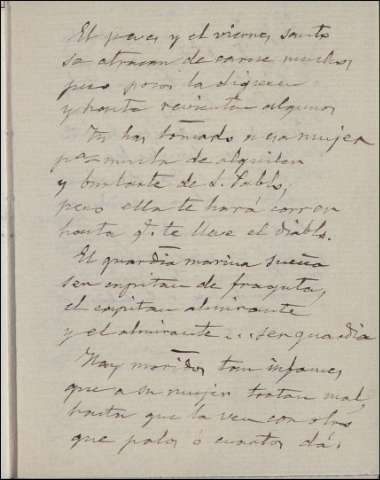 El jueves y el viernes santo
se atracan de carne muchos
pero pocos la digieren
y hasta revientan algunos
Tú has tomado a esa mujer
por mula de alquiler
y ambante de S. Pablo,
pero ella te hará correr
hasta q.e te lleve el diablo.
El guardia marina sueña
ser capitan de fragata,
el capitan almirante
y el almirante ... ser guardia
Hay maridos tan infames
que a su mujer tratan mal,
hasta que la ven con otro
que palos ó cuartos dá.